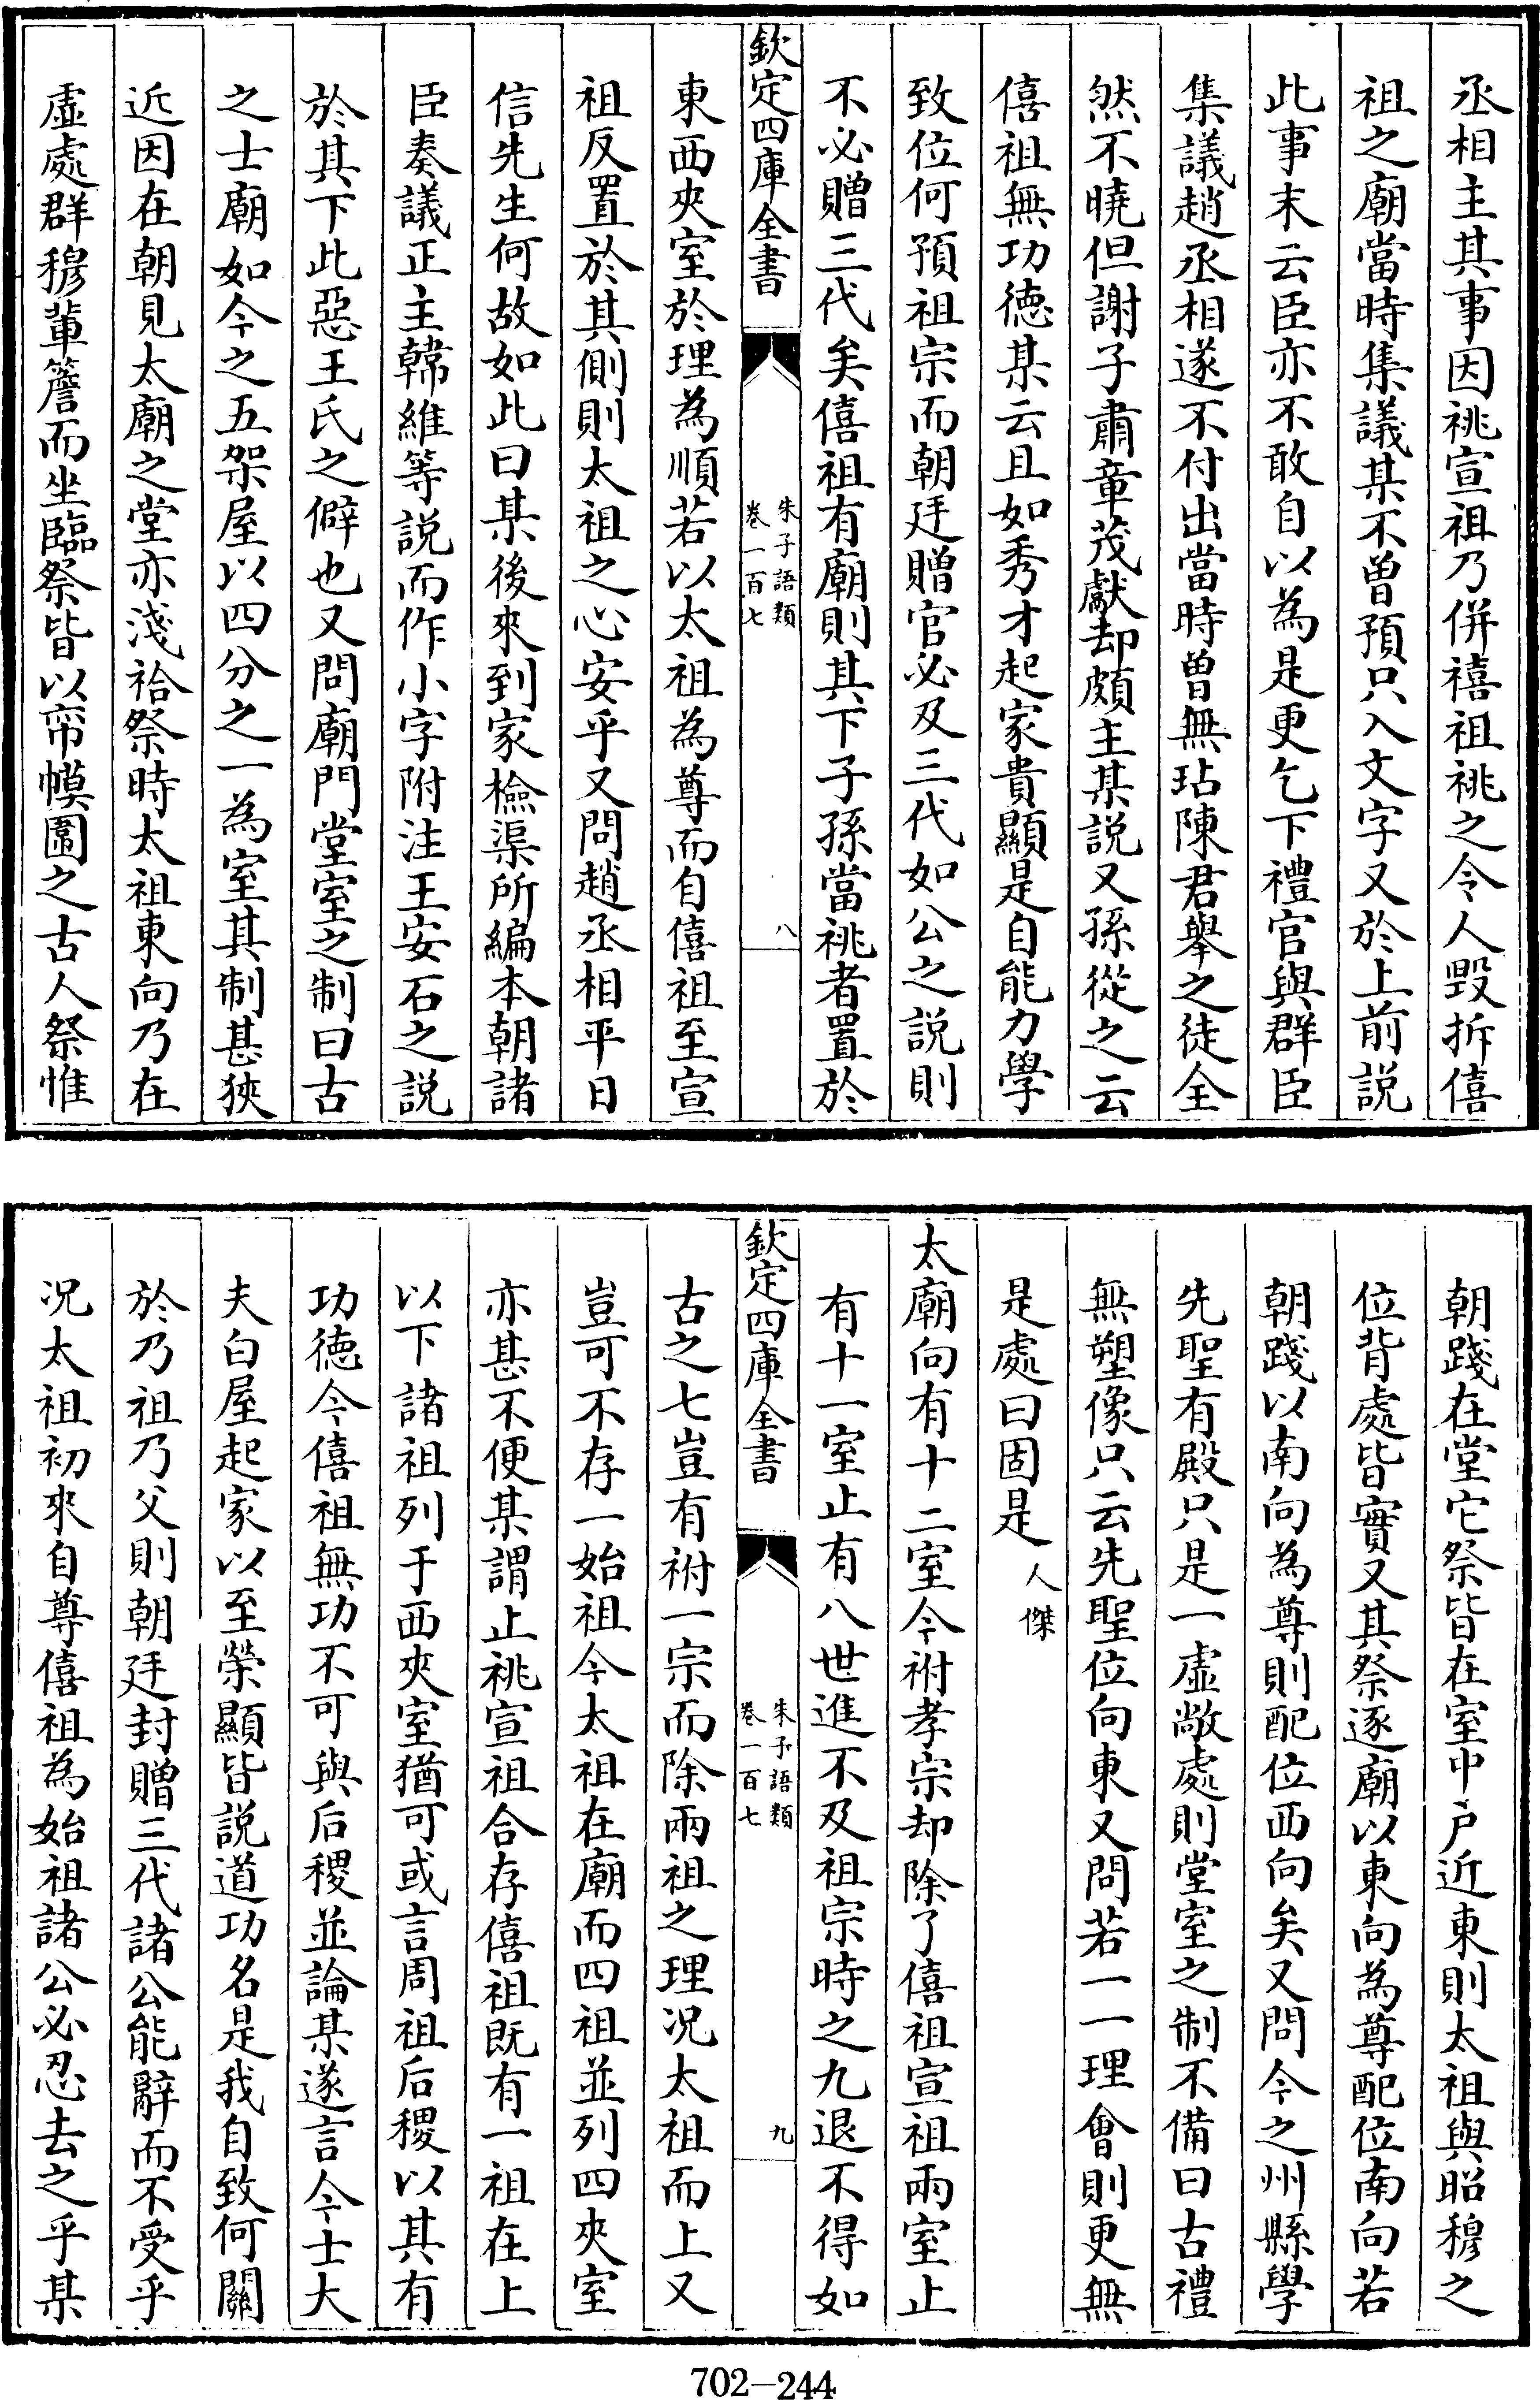 丞相主其事因祧宣祖乃併禧祖祧之令人毀拆僖
祖之廟當時集議某不曽預只入文字又於上前説
此事末云臣亦不敢自以為是更乞下禮官與群臣
集議趙丞相遂不付出當時曽無玷陳君舉之徒全
然不曉但謝子肅章茂獻却頗主某説又孫從之云
僖祖無功德某云且如秀才起家貴顯是自能力學
致位何預祖宗而朝廷贈官必及三代如公之説則
不必贈三代矣僖祖有廟則其下子孫當祧者置於
欽定四庫全書
朱子語類
卷一百七
八
東西夾室於理為順若以太祖為尊而自僖祖至宣
祖反置於其側則太祖之心安乎又問趙丞相平日
信先生何故如此曰某後來到家檢渠所編本朝諸
臣奏議正主韓維等説而作小字附注王安石之説
於其下此惡王氏之僻也又問廟門堂室之制曰古
之士廟如今之五架屋以四分之一為室其制甚狹
近因在朝見太廟之堂亦淺祫祭時太祖東向乃在
虛處群穆軰簷而坐臨祭皆以帘幙圍之古人祭惟
朝踐在堂它祭皆在室中户近東則太祖與昭穆之
位背處皆實又其祭逐廟以東向為尊配位南向若
朝踐以南向為尊則配位西向矣又問今之州縣學
先聖有殿只是一虛敞處則堂室之制不備曰古禮
無塑像只云先聖位向東又問若一一理會則更無
是處曰固是人傑
太廟向有十二室今祔孝宗却除了僖祖宣祖兩室止
有十一室止有八世進不及祖宗時之九退不得如
欽定四庫全書
朱子語類
卷一百七
九
古之七豈有祔一宗而除兩祖之理况太祖而上又
豈可不存一始祖今太祖在廟而四祖並列四夾室
亦甚不便某謂止祧宣祖合存僖祖既有一祖在上
以下諸祖列于西夾室猶可或言周祖后稷以其有
功德今僖祖無功不可與后稷並論某遂言今士大
夫白屋起家以至榮顯皆説道功名是我自致何關
於乃祖乃父則朝廷封贈三代諸公能辭而不受乎
况太祖初來自尊僖祖為始祖諸公必忍去之乎某
702-244